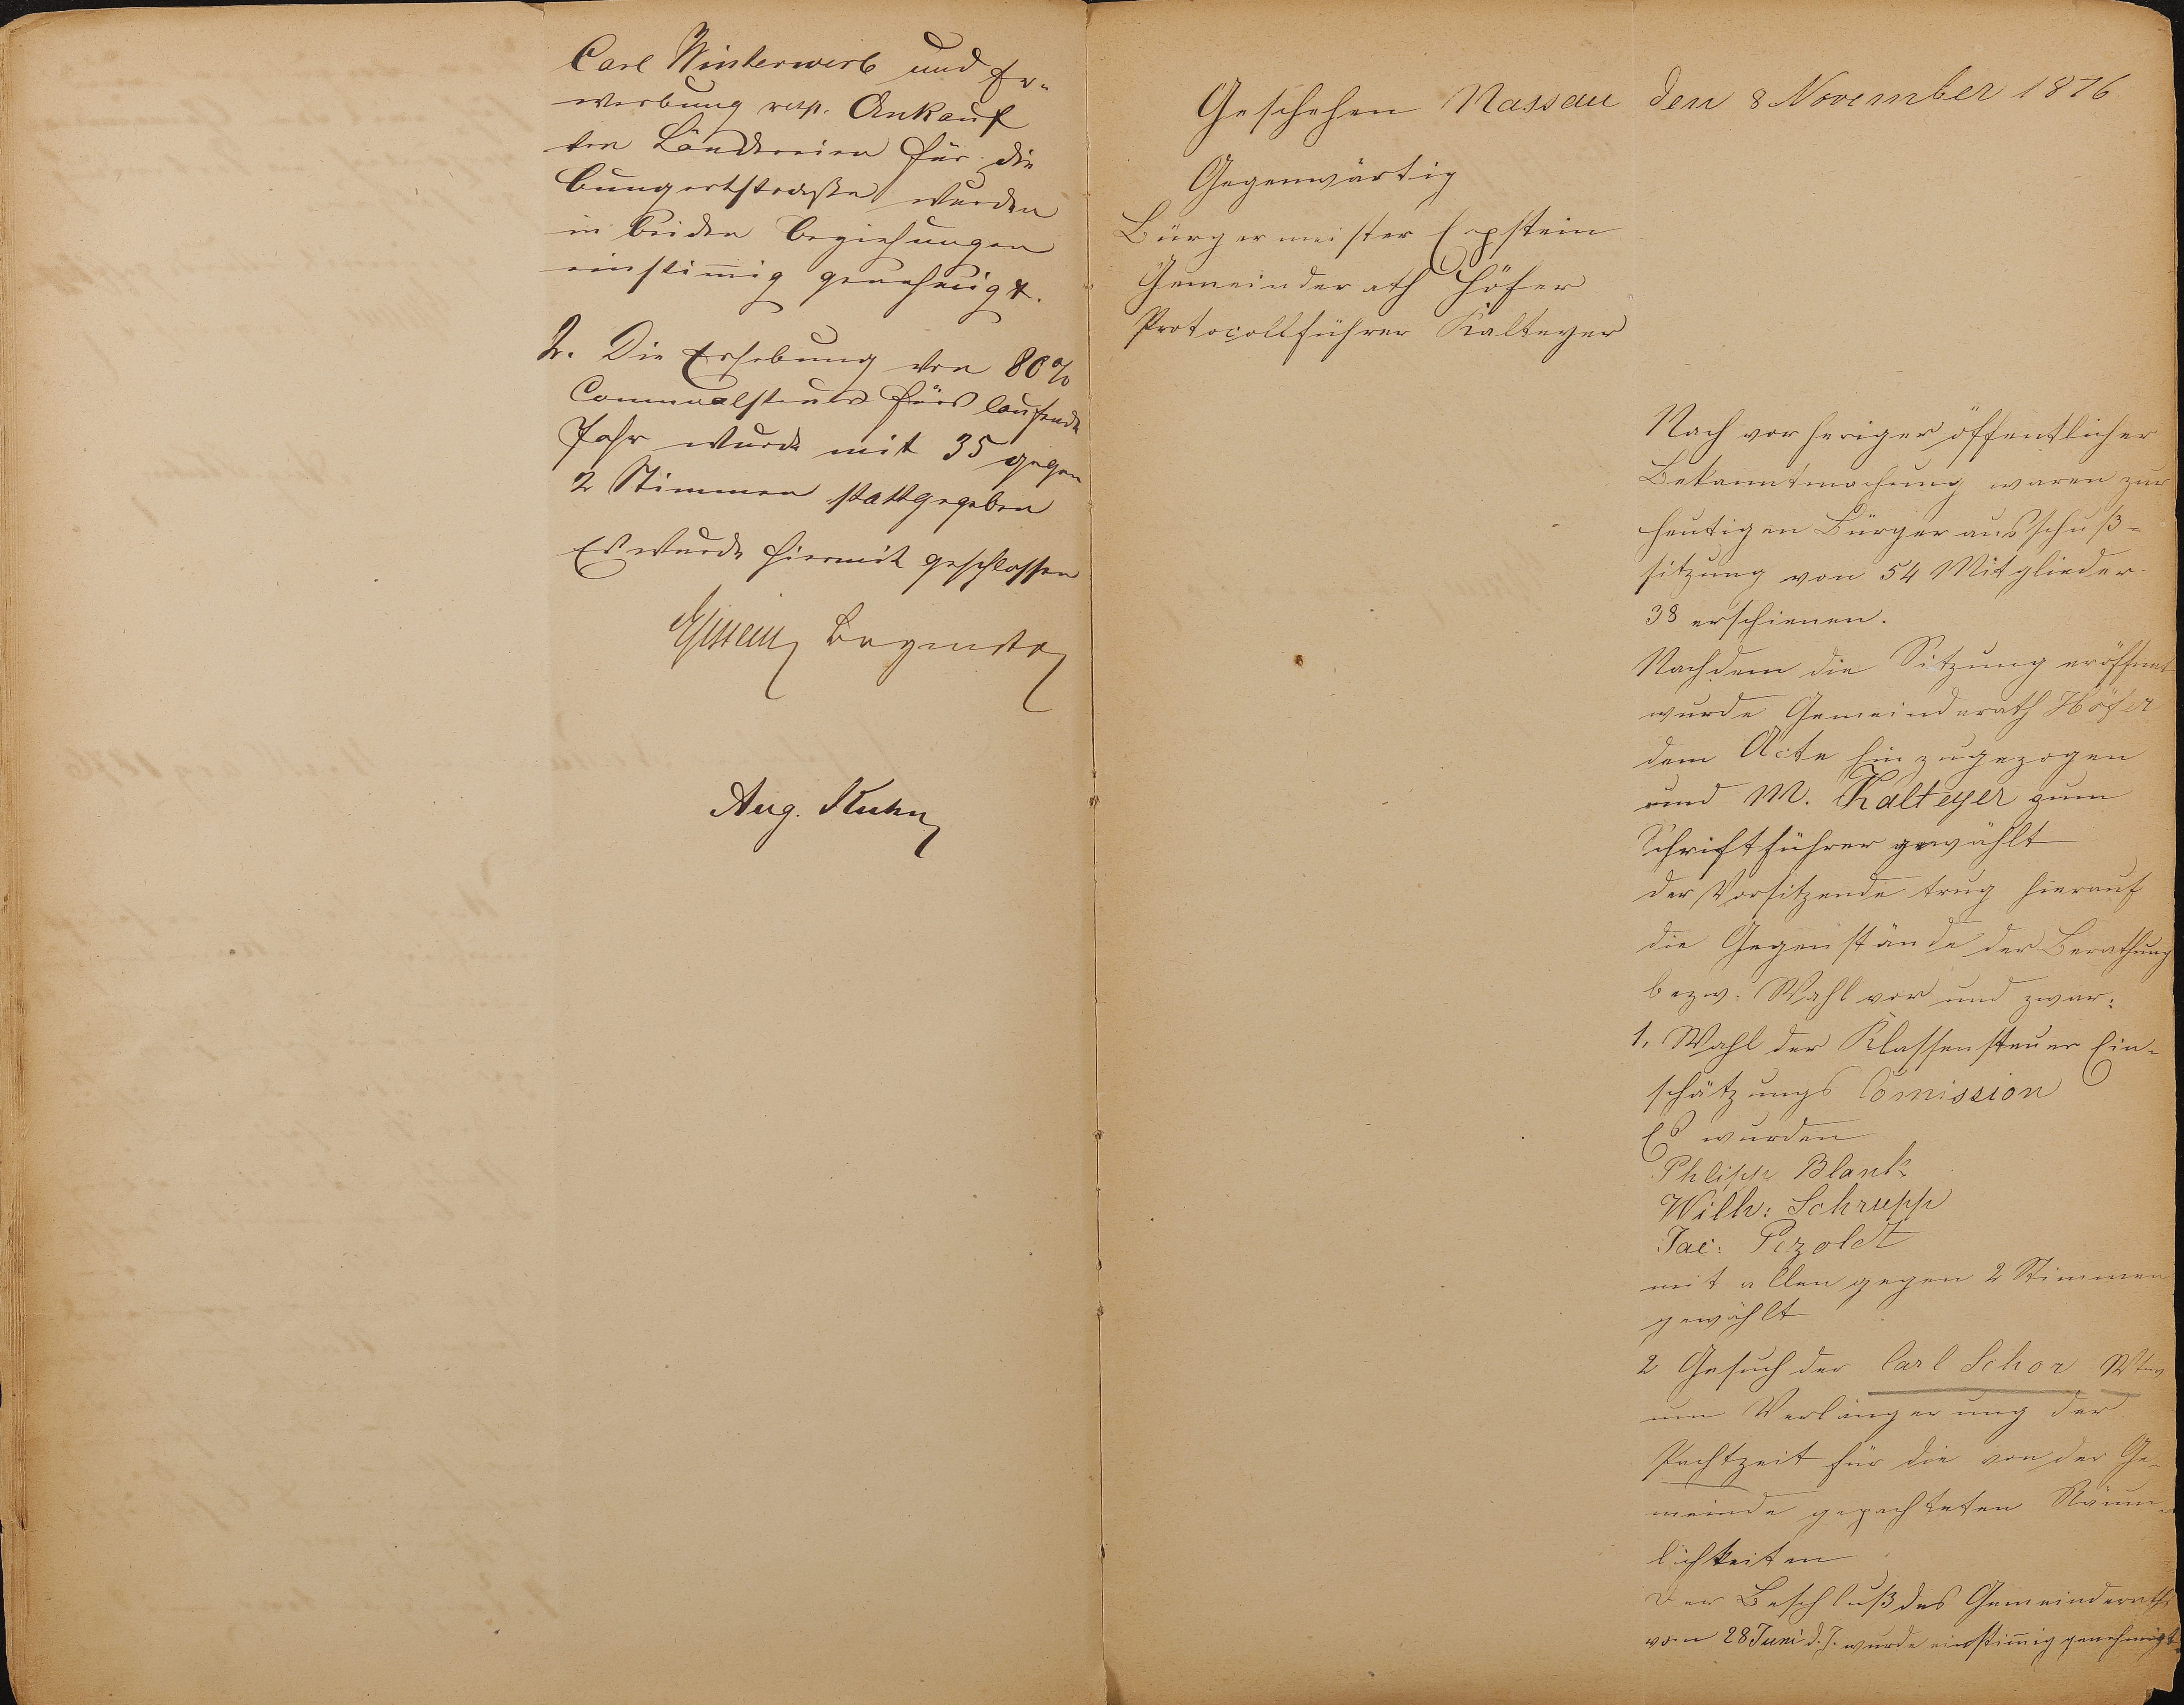 Carl Winterwerb und Er-
werbung resp. Ankauf
von Ländereien für die
Bungertstraße wurden
in beiden Beziehungen
einstimig genehmigt.
2. Die Erhebung von 80%
Communalsteuer fürs laufende
Jahr wurde mit 35 gegen
2 Stimmen stattgegeben
Es wurde hiermit geschlossen
Epstein Bürgermstr
Aug. Kuhn
Geschehen Nassau den 8 November 1876
Gegenwärtig
Bürgermeister Epstein
Gemeinderath Höfer
Protocollführer Kalteyer
Nach vorheriger öffentlicher
Bekanntmachung waren zur
heutigen Bürgerausschuß-
sitzung von 54 Mitglieder
38 erschienen.
Nachdem die Sitzung eröffnet
wurde Gemeinderath Höfer
dem Acte hinzugezogen
und M. Kalteyer zum
Schriftführer gewählt
der Vorsitzende trug hierauf
die Gegenstände der Berathung
bezw. Wahl vor und zwar:
1, Wahl der Klassensteuer Ein-
schätzungs Comission
Es wurden
Phlipp Blank
Wilh: Schrupp
Jac: Pezoldt
mit allen gegen 2 Stimmen
gewählt
2 Gesuch der Carl Schor Wtw
um Verlängerung der
Pachtzeit für die von der Ge-
meinde gepachteten Räum-
lichkeiten
Der Beschluß des Gemeinderaths
vom 28 Juni d. J. wurde einstimig genehmigt